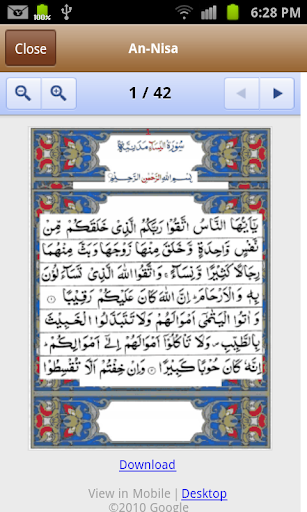 6:28 PM
Close
An-Nisa
1 / 42
سُورَةُ النِّسَاءِ مَدَنِيَّةٌ
بِسْمِ اللهِ الرَّحْمٰنِ الرَّحِيْمِ
يٰٓاَيُّهَا النَّاسُ اتَّقُوْا رَبَّكُمُ الَّذِيْ خَلَقَكُمْ مِّنْ
نَّفْسٍ وَّاحِدَةٍ وَّخَلَقَ مِنْهَا زَوْجَهَا وَبَثَّ مِنْهُمَا
رِجَالًا كَثِيْرًا وَّنِسَآءً ۚ وَاتَّقُوا اللهَ الَّذِيْ تَسَآءَلُوْنَ
بِهٖ وَالْاَرْحَامَ ۗ اِنَّ اللهَ كَانَ عَلَيْكُمْ رَقِيْبًا ١
وَاٰتُوا الْيَتٰمٰٓى اَمْوَالَهُمْ وَلَا تَتَبَدَّلُوا الْخَبِيْثَ
بِالطَّيِّبِ ۖ وَلَا تَأْكُلُوْٓا اَمْوَالَهُمْ اِلٰٓى اَمْوَالِكُمْ ۗ
اِنَّهٗ كَانَ حُوْبًا كَبِيْرًا ٢ وَاِنْ خِفْتُمْ اَلَّا تُقْسِطُوْا
Download
View in Mobile | Desktop
©2010 Google